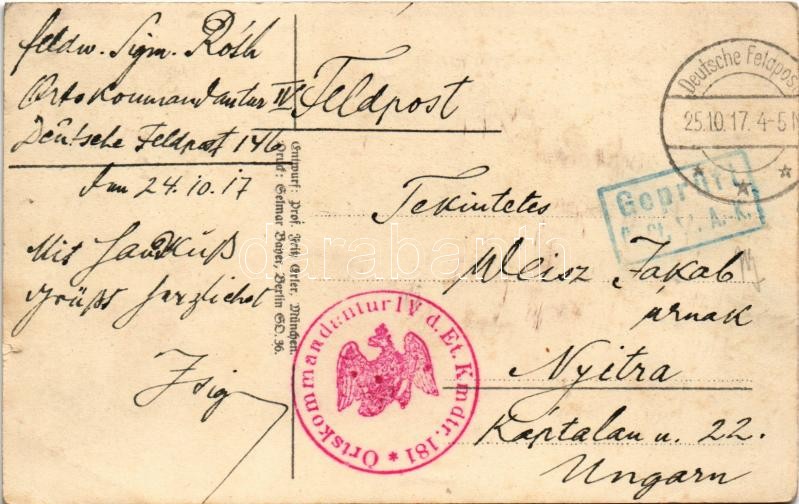 Feldw. Sigm. Róth
Ortskommandantur IV
Deutsche Feldpost 146
Am 24.10.17
Mit Handkuß
grüßt herzlichst
Zsiga
Feldpost
Deutsche Feldpost
25.10.17. 4-5 N
Geprüft
Tekintetes
Weisz Jakab
úrnak
Nyitra
Káptalan u. 22.
Ungarn
Entwurf: Prof. Fritz Erler, München.
Druck: Selmar Bayer, Berlin SO. 36.
Ortskommandantur IV d. Et. Kmdtr. 181 *
darabanth